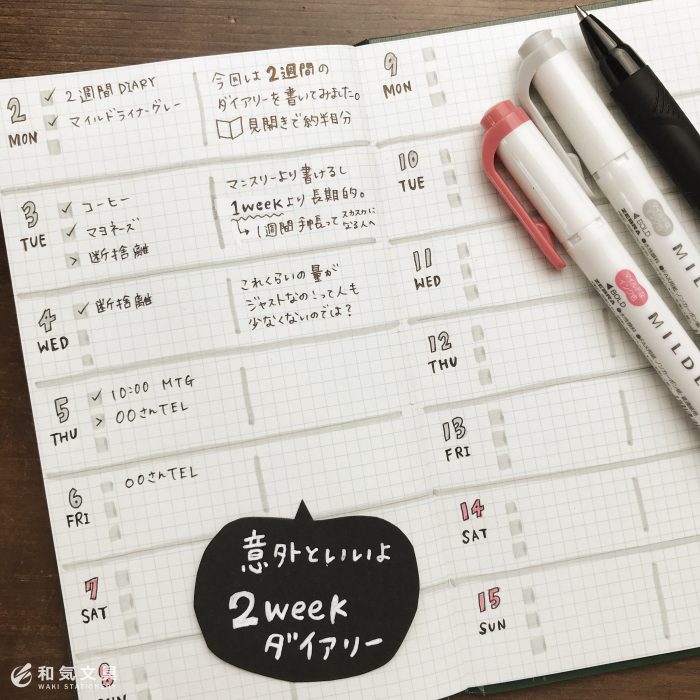 2
MON
✓ 2週間 DIARY
✓ マイルドライナーグレー
今回は2週間の
ダイアリーを書いてみました。
見開きで約半月分
3
TUE
✓ コーヒー
✓ マヨネーズ
> 断捨離
マンスリーより書けるし
1weekより長期的。
↳ 1週間手帳って スカスカに
なる人へ
4
WED
✓ 断捨離
これくらいの量が
ジャストなの!って人も
少なくないのでは?
5
THU
✓ 10:00 MTG
> 〇〇さんTEL
6
FRI
〇〇さんTEL
7
SAT
8
SUN
9
MON
10
TUE
11
WED
12
THU
13
FRI
14
SAT
15
SUN
意外といいよ
2week
ダイアリー
ZEBRA
BOLD
マイルドな
インク色
MILD
ZEBRA
BOLD
MILD
和気文具
WAKI STATIONERY